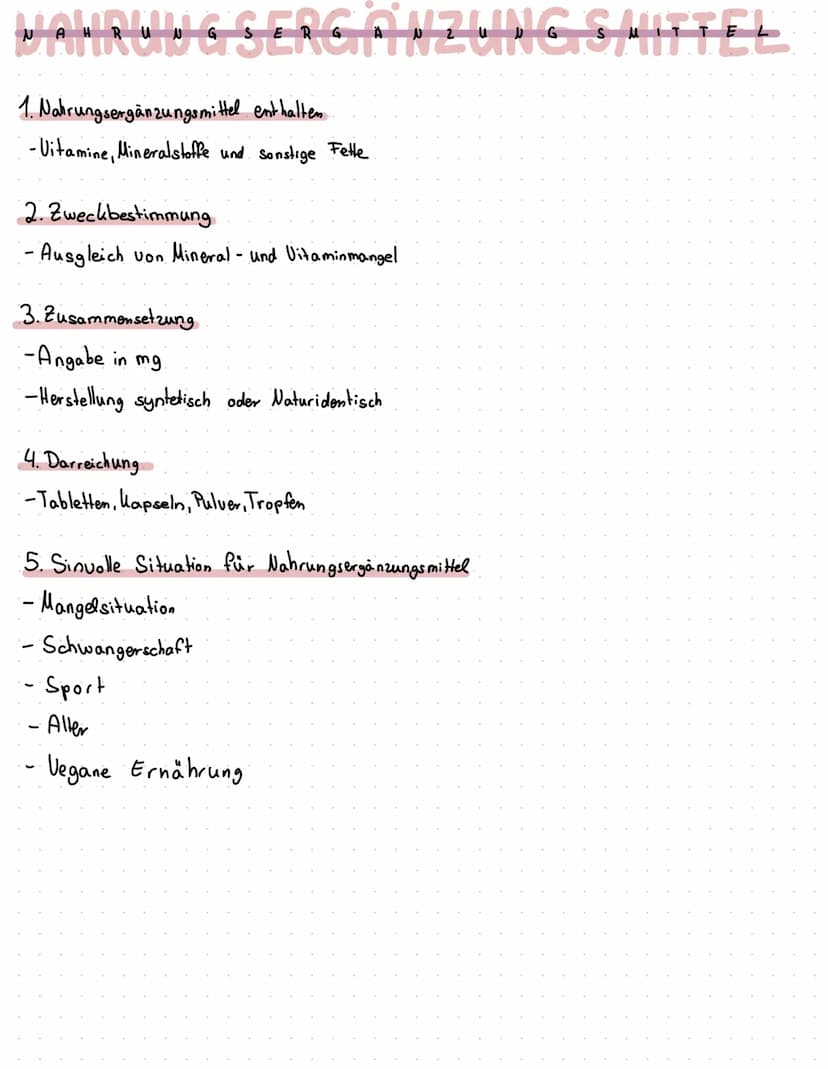 NAHRUNGSERGÄNZUNGSMITTEL
NAHRUNGSERGÄNZUNGSMITTEL
1. Nahrungsergänzungsmittel enthalten
- Vitamine, Mineralstoffe und sonstige Fette
2. Zweckbestimmung
- Ausgleich von Mineral- und Vitaminmangel
3. Zusammensetzung
- Angabe in mg
- Herstellung syntetisch oder Naturidentisch
4. Darreichung
- Tabletten, Kapseln, Pulver, Tropfen
5. Sinvolle Situation für Nahrungsergänzungsmittel
- Mangelsituation
- Schwangerschaft
- Sport
- Alter
- Vegane Ernährung